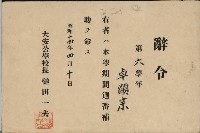 辭令
第六學年
卓顯宗
右者ハ本學期間週番補
助ヲ命ス
昭和十年四月十日
大安公學校長 植田一夫